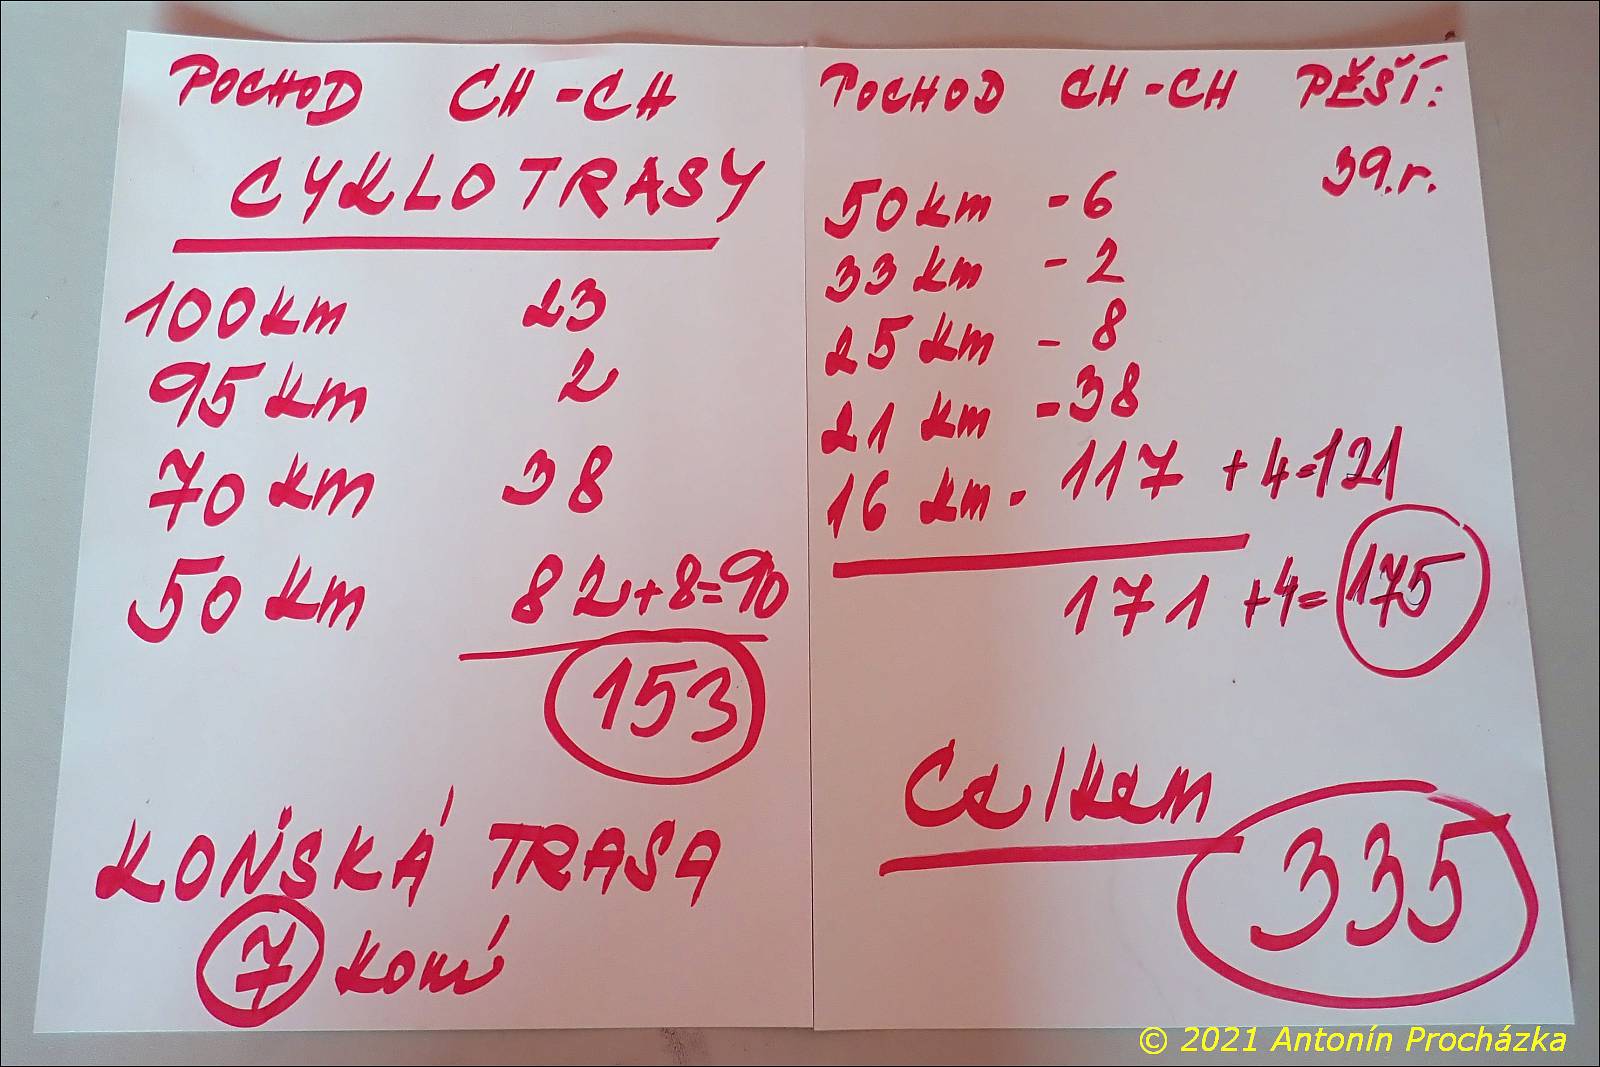 POCHOD CH-CH
CYKLOTRASY
100 km 23
95 km 2
70 km 38
50 km 82+8=90
153
KOŇSKÁ TRASA
7 koní
POCHOD CH-CH PĚŠÍ:
39.r.
50 km - 6
33 km - 2
25 km - 8
21 km - 38
16 km - 117 +4=121
171 +4= 175
Celkem
335
© 2021 Antonín Procházka